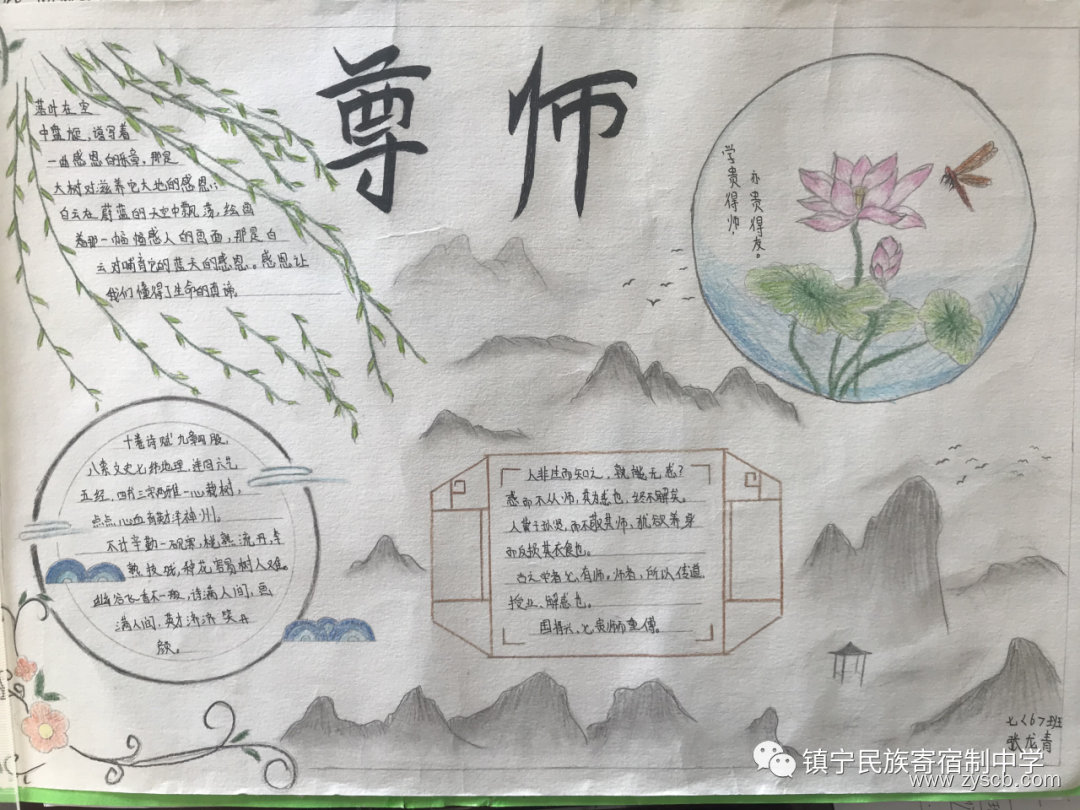 尊师
落叶在空
中盘旋，谱写着
一曲感恩的乐章，那是
大树对滋养它大地的感恩；
白云在蔚蓝的天空中飘荡，绘画
着那一幅幅感人的画面，那是白
云对哺育它的蓝天的感恩。感恩让
我们懂得了生命的真谛。
学贵得师，
亦贵得友。
十卷诗赋九章勾股，
八索文史七纬地理，连同六艺
五经、四书三字两雅一心栽树，
点点心血育英才泽神州。
不计辛勤一砚寒，桃熟流丹，李
熟枝残，种花容易树人难。
幽谷飞香不一般，诗满人间，画
满人间，英才济济笑开
颜。
人非生而知之，孰能无惑？
惑而不从师，其为惑也，终不解矣。
人黄于孙贤，而不敬其师，犹欲养身
而反损其衣食也。
古之学者必有师。师者，所以传道
授业、解惑也。
国将兴，必贵师而重傅。
七〈6〉班
张龙青
镇宁民族寄宿制中学
www.zyscb.com